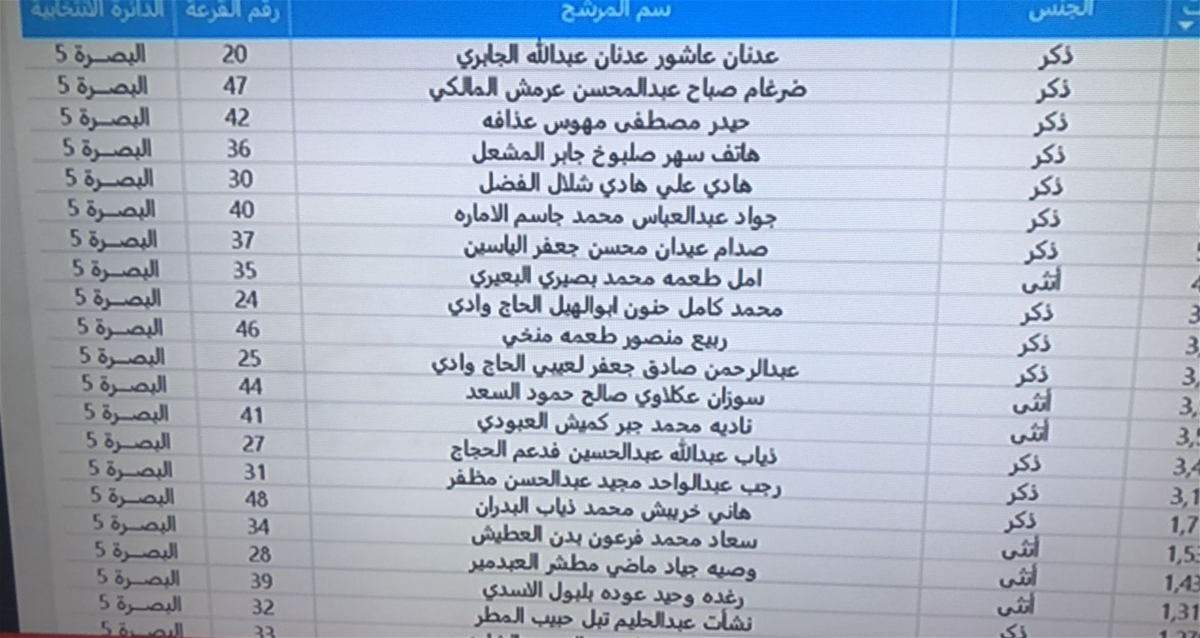 الجنس سم المرشح رقم القرعة الدائرة الانتخابية
ذكر عدنان عاشور عدنان عبدالله الجابري 20 البصرة 5
ذكر ضرغام صباح عبدالمحسن عرمش المالكي 47 البصرة 5
ذكر حيدر مصطفى مهوس عذافه 42 البصرة 5
ذكر هاتف سهر صلبوخ جابر المشعل 36 البصرة 5
ذكر هادي علي هادي شلال الفضل 30 البصرة 5
ذكر جواد عبدالعباس محمد جاسم الاماره 40 البصرة 5
ذكر صدام عيدان محسن جعفر الياسين 37 البصرة 5
4 أنثى امل طعمه محمد بصيري البعيري 35 البصرة 5
3 ذكر محمد كامل حنون ابوالهيل الحاج وادي 24 البصرة 5
3, ذكر ربيع منصور طعمه منخي 46 البصرة 5
3, ذكر عبدالرحمن صادق جعفر لعيبي الحاج وادي 25 البصرة 5
3, أنثى سوزان عكلاوي صالح حمود السعد 44 البصرة 5
3, أنثى ناديه محمد جبر كميش العبودي 41 البصرة 5
3, ذكر ذياب عبدالله عبدالحسين فدعم الحجاج 27 البصرة 5
3,1 ذكر رجب عبدالواحد مجيد عبدالحسن مظفر 31 البصرة 5
1,7 ذكر هاني خريبش محمد ذياب البدران 48 البصرة 5
1,5 أنثى سعاد محمد فرعون بدن العطيش 34 البصرة 5
1,43 أنثى وصيه جياد ماضي مطشر العبدمير 28 البصرة 5
1,31 أنثى رغده وحيد عوده بلبول الاسدي 39 البصرة 5
ذكر نشأت عبدالحليم تبل حبيب المطر 32 البصرة 5
33 البصرة 5